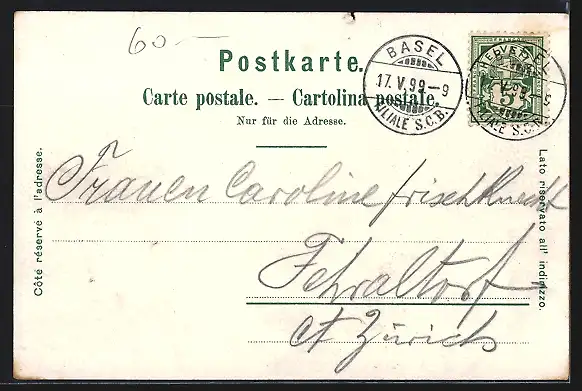 60.—
Postkarte.
Carte postale. — Cartolina postale.
Nur für die Adresse.
BASEL
17. V. 99 – 9
FILIALE S.C.B.
5
FILIALE S.C.B.
Côté réservé à l'adresse.
Lato riservato all' indirizzo.
Frauen Caroline Frischknecht
Fehraltorf
Ct Zürich